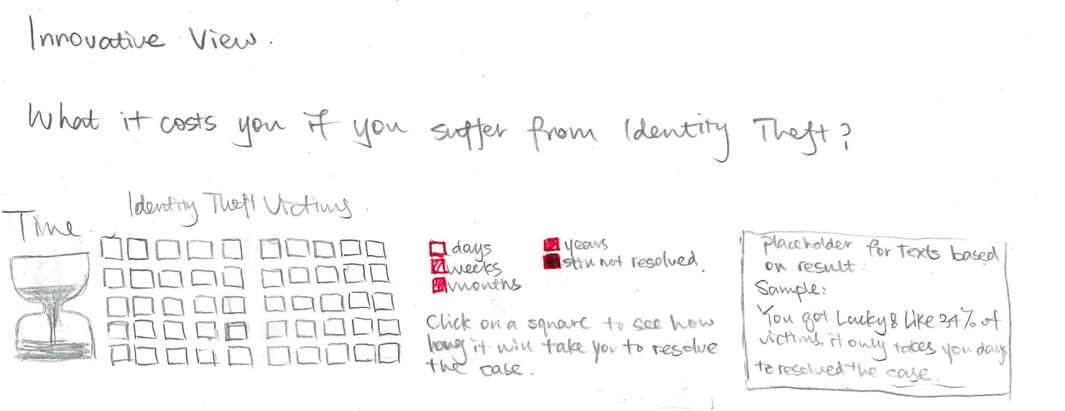 Innovative View.
What it costs you if you suffer from Identity Theft?
Time
Identity Theft Victims.
days
weeks
months
years
still not resolved.
Click on a square to see how
long it will take you to resolve
the case.
placeholder for Texts based
on result.
Sample:
You got Lucky & Like 34% of
victims, it only takes you days
to resolved the case.